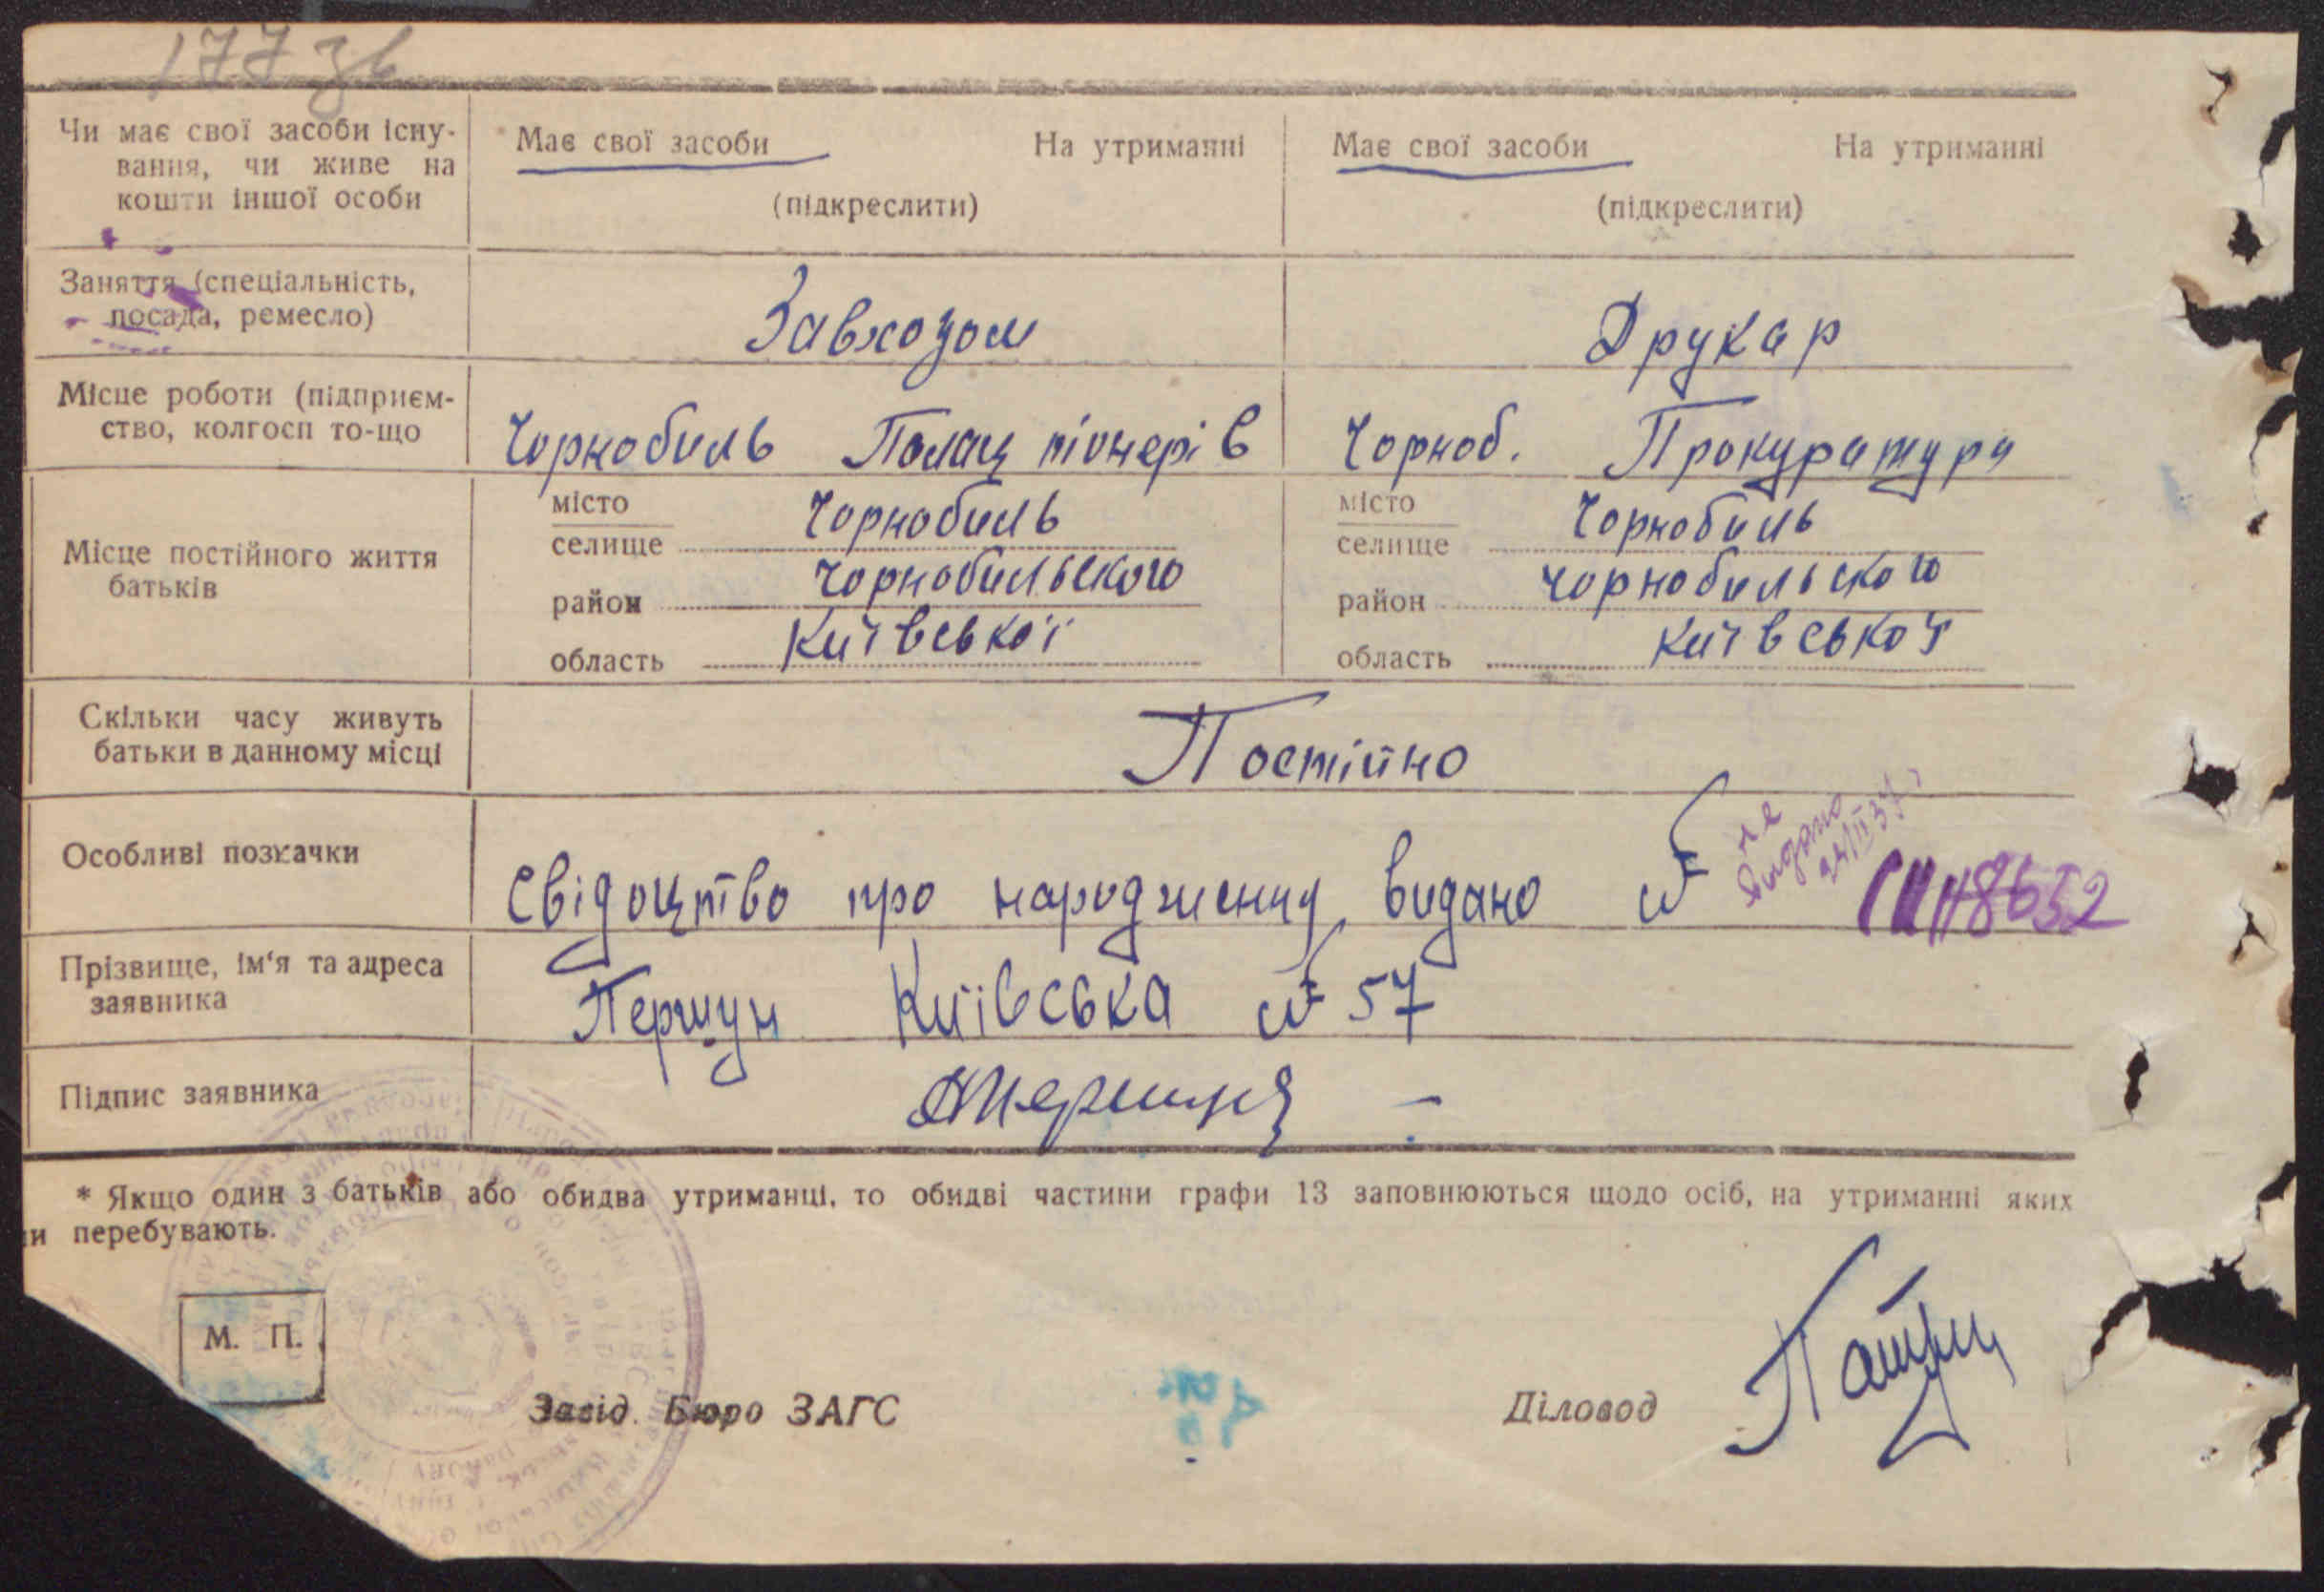 177 зв
Чи має свої засоби існу-
вання, чи живе на
кошти іншої особи
Має свої засоби На утриманні
(підкреслити)
Має свої засоби На утриманні
(підкреслити)
Заняття (спеціальність,
посада, ремесло)
Завхозом
Друкар
Місце роботи (підприєм-
ство, колгосп то-що
Чорнобиль Палац піонерів
Чорноб. Прокуратура
Місце постійного життя
батьків
місто
селище Чорнобиль
район Чорнобильского
область Київської
місто
селище Чорнобиль
район Чорнобильского
область Київської
Скільки часу живуть
батьки в данному місці
Постійно
Особливі позначки
Свідоцтво про народження видано №
не
видано
24/II 37
Прізвище, ім'я та адреса
заявника
Першун Київська № 57
Підпис заявника
* Якщо один з батьків або обидва утриманці, то обидві частини графи 13 заповнюються щодо осіб, на утриманні яких
и перебувають.
М. П.
Завід. Бюро ЗАГС
Діловод